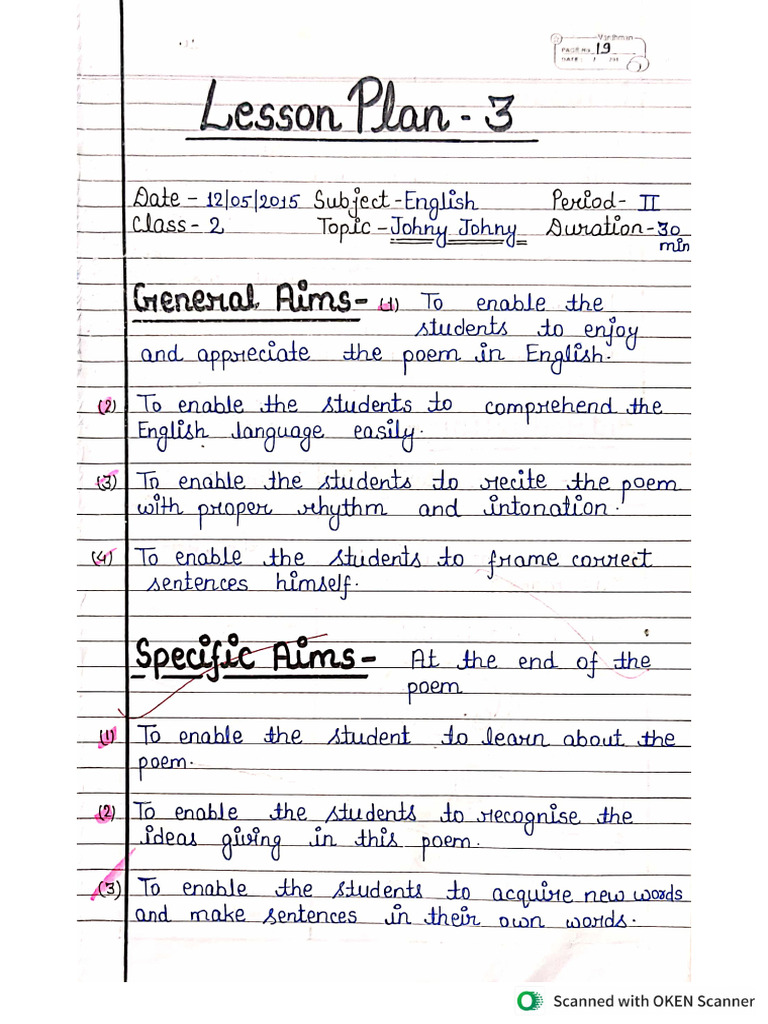 Vardhman
PAGE No. 19
DATE : / /20
Lesson Plan - 3
Date - 12/05/2015 Subject - English Period - II
Class - 2 Topic - Johny Johny Duration - 30
min
General Aims - (1) To enable the
students to enjoy
and appreciate the poem in English.
(2) To enable the students to comprehend the
English language easily.
(3) To enable the students to recite the poem
with proper rhythm and intonation.
(4) To enable the students to frame correct
sentences himself.
Specific Aims - At the end of the
poem
(1) To enable the student to learn about the
poem.
(2) To enable the students to recognise the
ideas giving in this poem.
(3) To enable the students to acquire new words
and make sentences in their own words.
Scanned with OKEN Scanner